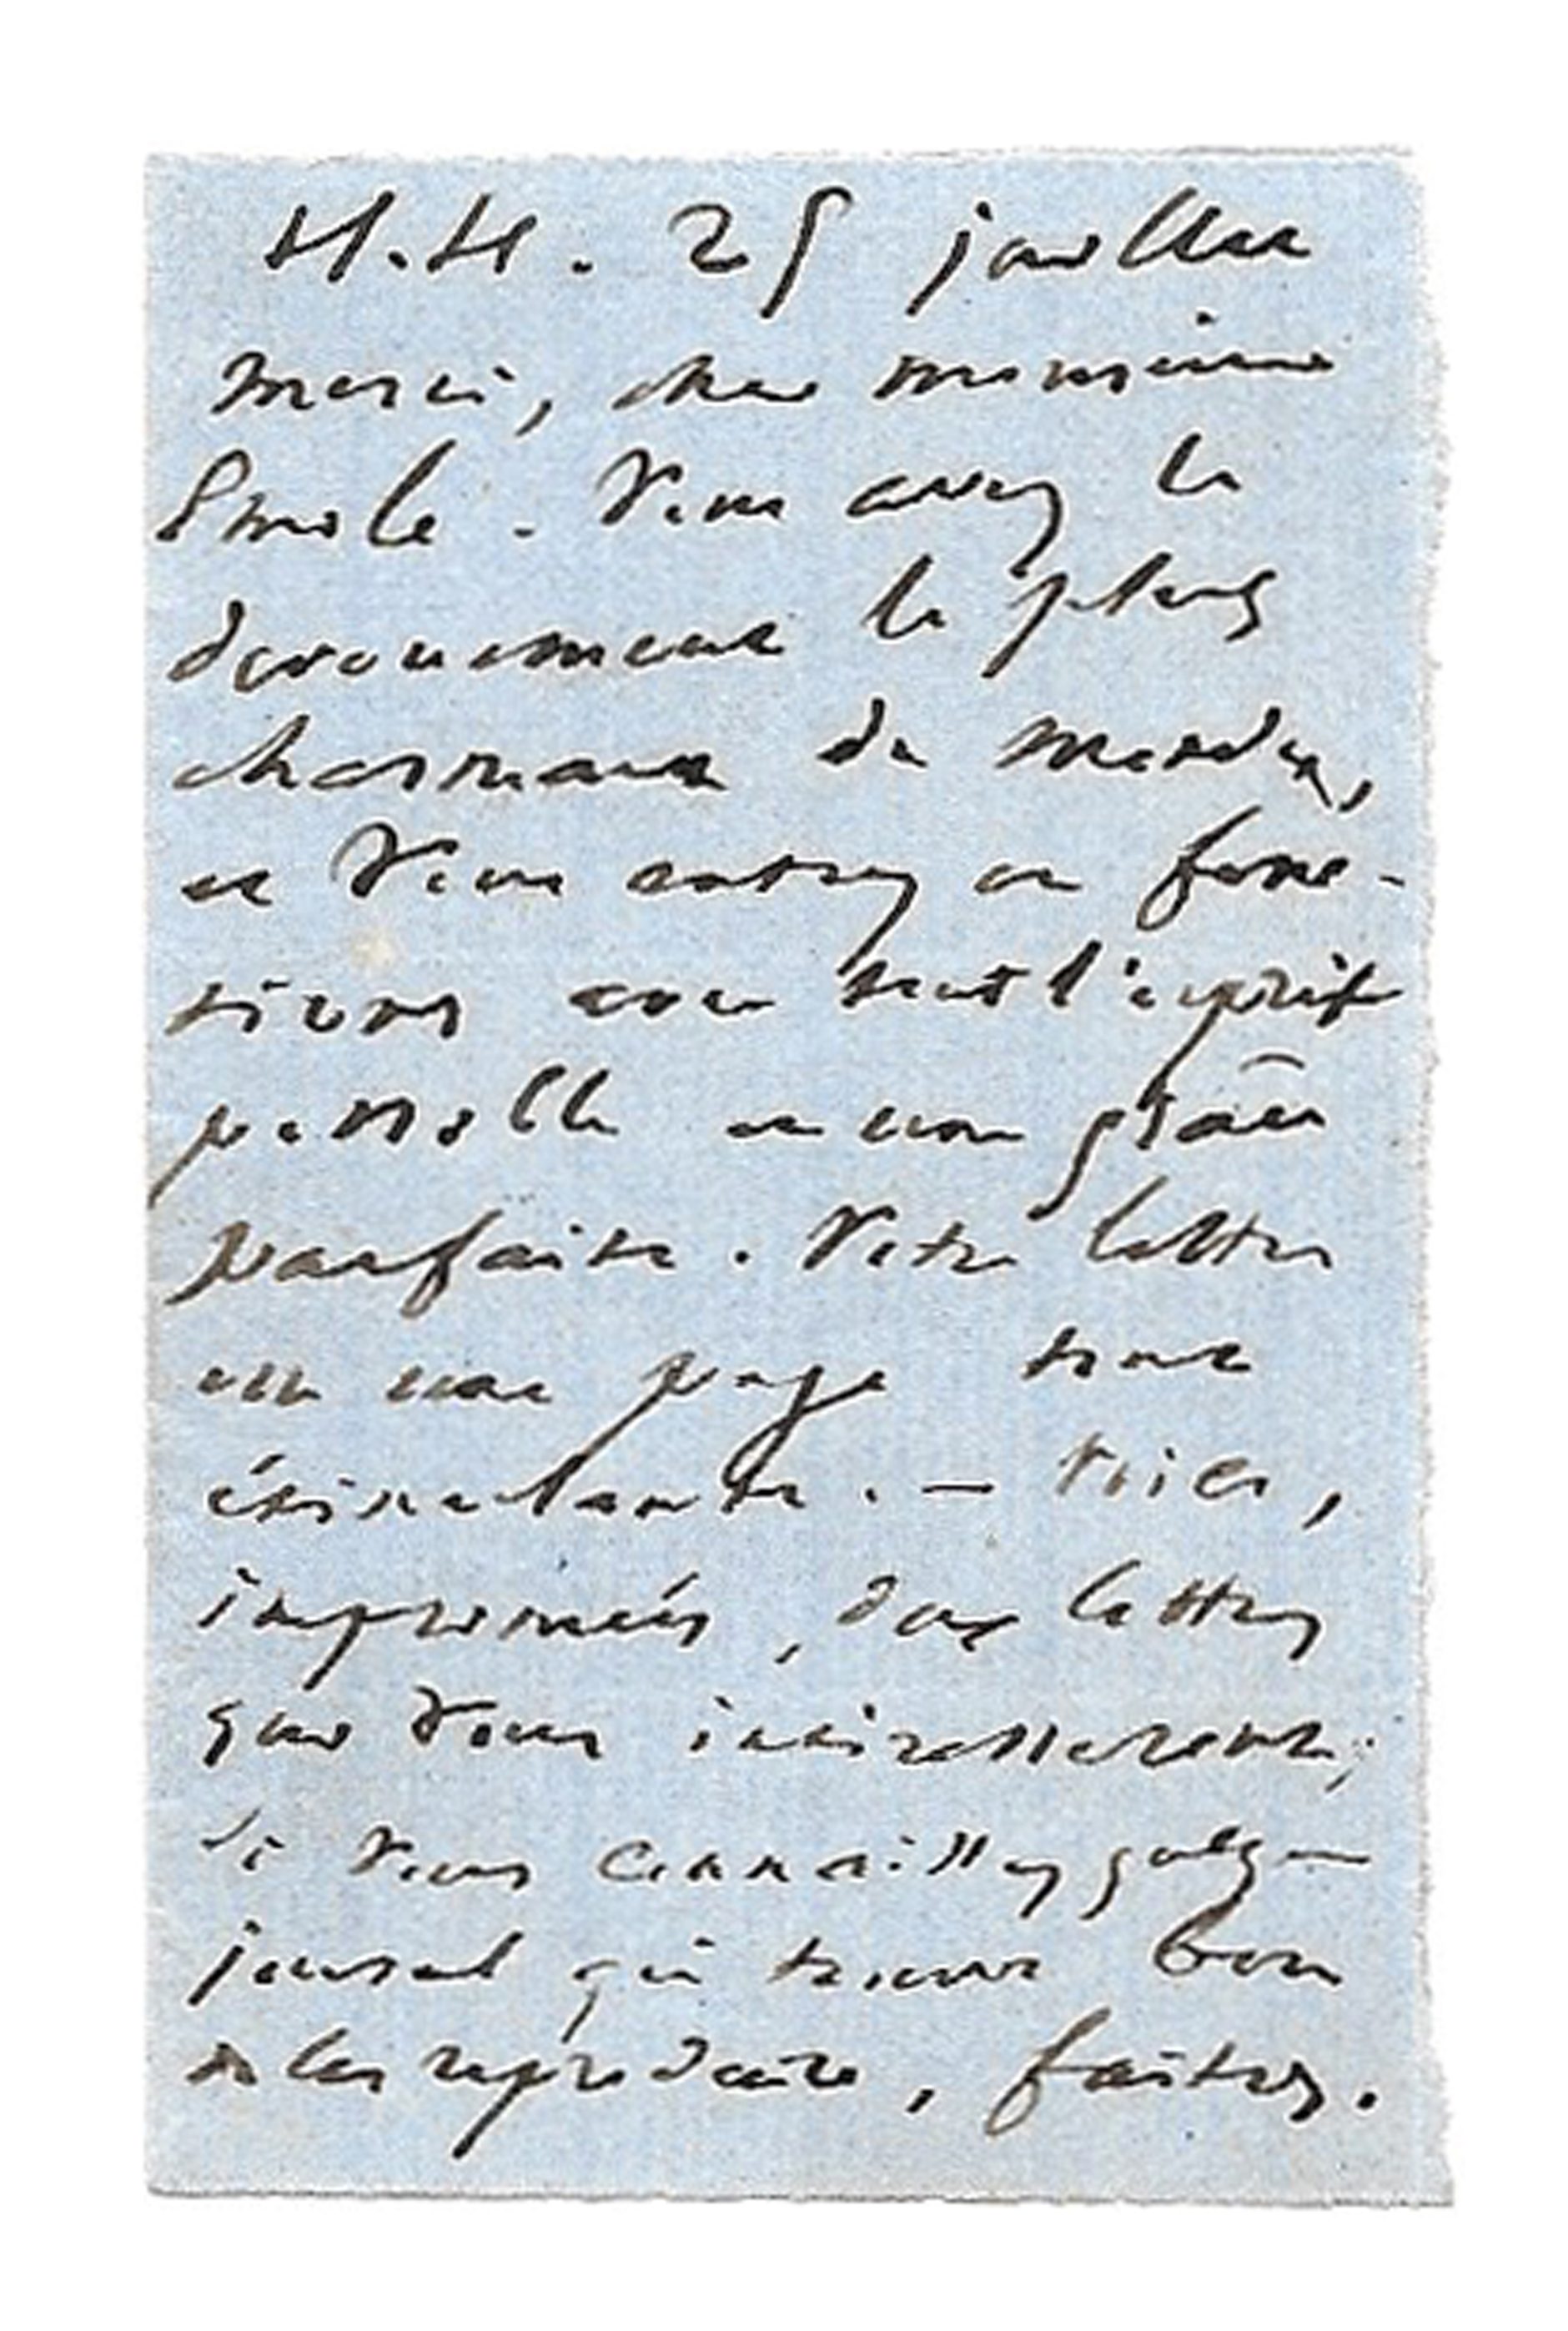 H.H. 25 juillet
Merci, cher monsieur
Emile. Vous avez le
dévouement le plus
charmant du monde,
et vous entrez en fonc-
tions avec tout l'esprit
possible et une grâce
parfaite. Votre lettre
est une page toute
étincelante. — Voici,
imprimées, deux lettres
qui vous intéresseront;
si vous connaissez quelque
journal qui trouve bon
de les reproduire, faites.